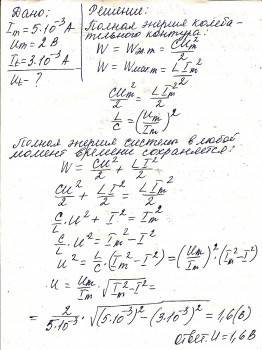 Дано:
I_m = 5·10⁻³ А
U_m = 2 В
I_t = 3·10⁻³ А
U_t - ?
Решение:
Полная энергия колеба-
тельного контура:
W = W_эл m = CU_m²/2
W = W_маг m = LI_m²/2
CU_m²/2 = LI_m²/2
L/C = (U_m/I_m)²
Полная энергия системы в любой
момент времени сохраняется:
W = CU²/2 + LI²/2
CU²/2 + LI²/2 = LI_m²/2
C/L · U² + I² = I_m²
C/L U² = I_m² - I²
U² = L/C · (I_m² - I²) = (U_m/I_m)² · (I_m² - I²)
U = U_m/I_m · √(I_m² - I²) =
= 2/(5·10⁻³) · √((5·10⁻³)² - (3·10⁻³)²) = 1,6 (В)
Ответ: U = 1,6 В